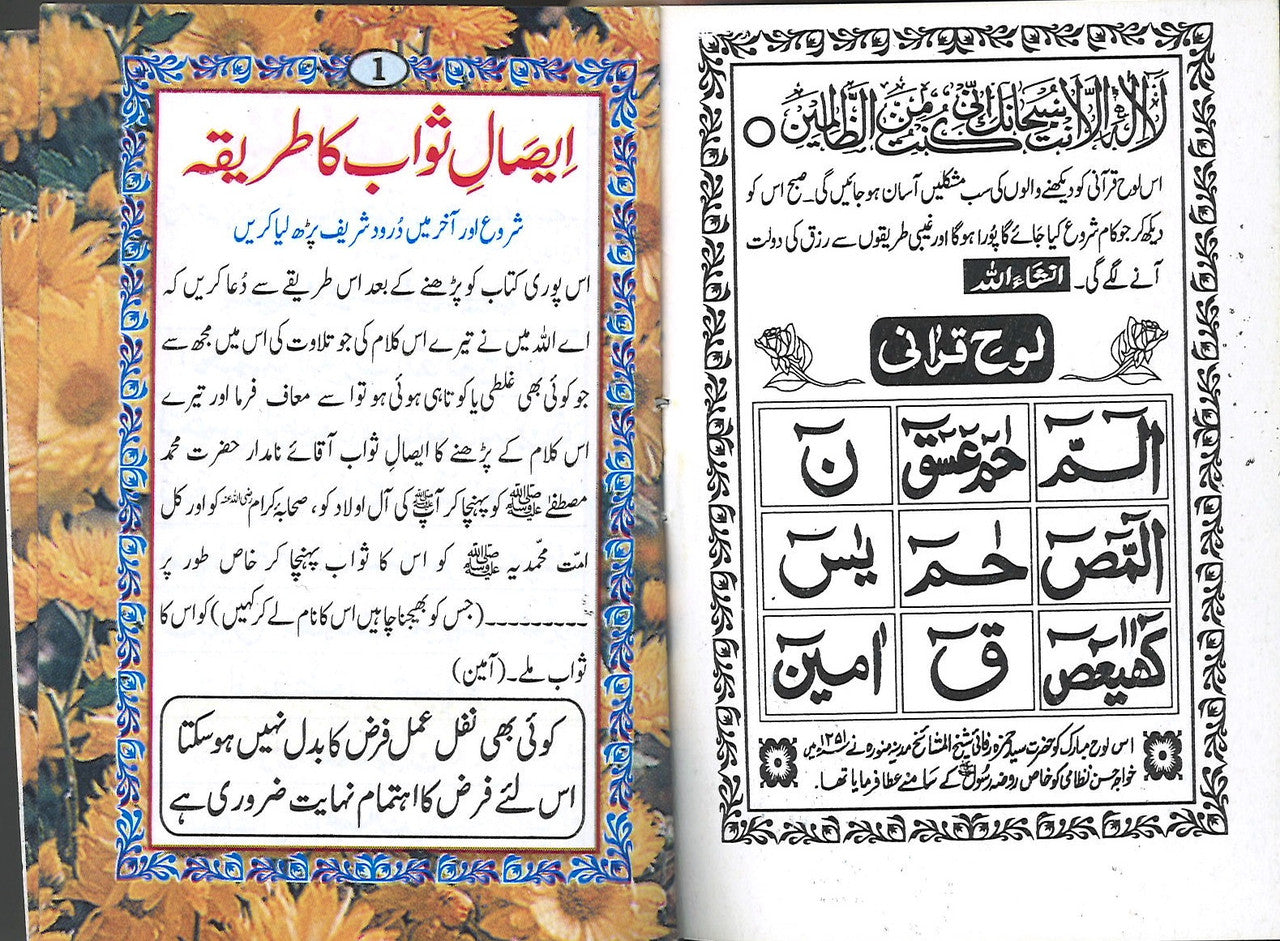 لَا اِلٰهَ اِلَّا اَنْتَ سُبْحَانَكَ اِنِّيْ كُنْتُ مِنَ الظَّالِمِيْنَ
اس لوح قرآنی کو دیکھنے والوں کی سب مشکلیں آسان ہو جائیں گی۔ صبح اس کو
دیکھ کر جو کام شروع کیا جائے گا پورا ہوگا اور غیبی طریقوں سے رزق کی دولت
آنے لگے گی۔ انشاءاللہ
لوح قرآنی
الٓمّٓ حٰمٓ عٓسٓقٓ نٓ
الٓمّٓصٓ حٰمٓ یٰسٓ
كٓهٰيٰعٓصٓ قٓ اٰمین
اس لوح مبارک کو حضرت سید حمزہ رفائی شیخ المشائخ مدینہ منورہ نے ۱۲۵۱ میں
خواجہ حسن نظامی کو خاص روضہ رسولؐ کے سامنے عطا فرمایا تھا۔
1
اِیصَالِ ثواب کا طریقہ
شروع اور آخر میں دُرود شریف پڑھ لیا کریں
اس پوری کتاب کو پڑھنے کے بعد اس طریقے سے دُعا کریں کہ
اے اللہ میں نے تیرے اس کلام کی جو تلاوت کی اس میں مجھ سے
جو کوئی بھی غلطی یا کوتاہی ہوئی ہو تو اسے معاف فرما اور تیرے
اس کلام کے پڑھنے کا ایصالِ ثواب آقائے نامدار حضرت محمد
مصطفےٰ ﷺ کو پہنچا کر آپ ﷺ کی آل اولاد کو، صحابۂ کرام رضی اللہ عنہ کو اور کل
امت محمّدیہ ﷺ کو اس کا ثواب پہنچا کر خاص طور پر
۔۔۔۔۔۔۔۔۔۔(جس کو بھیجنا چاہیں اس کا نام لے کر کہیں) کو اس کا
ثواب ملے۔ (آمین)
کوئی بھی نفل عمل فرض کا بدل نہیں ہو سکتا
اس لئے فرض کا اہتمام نہایت ضروری ہے